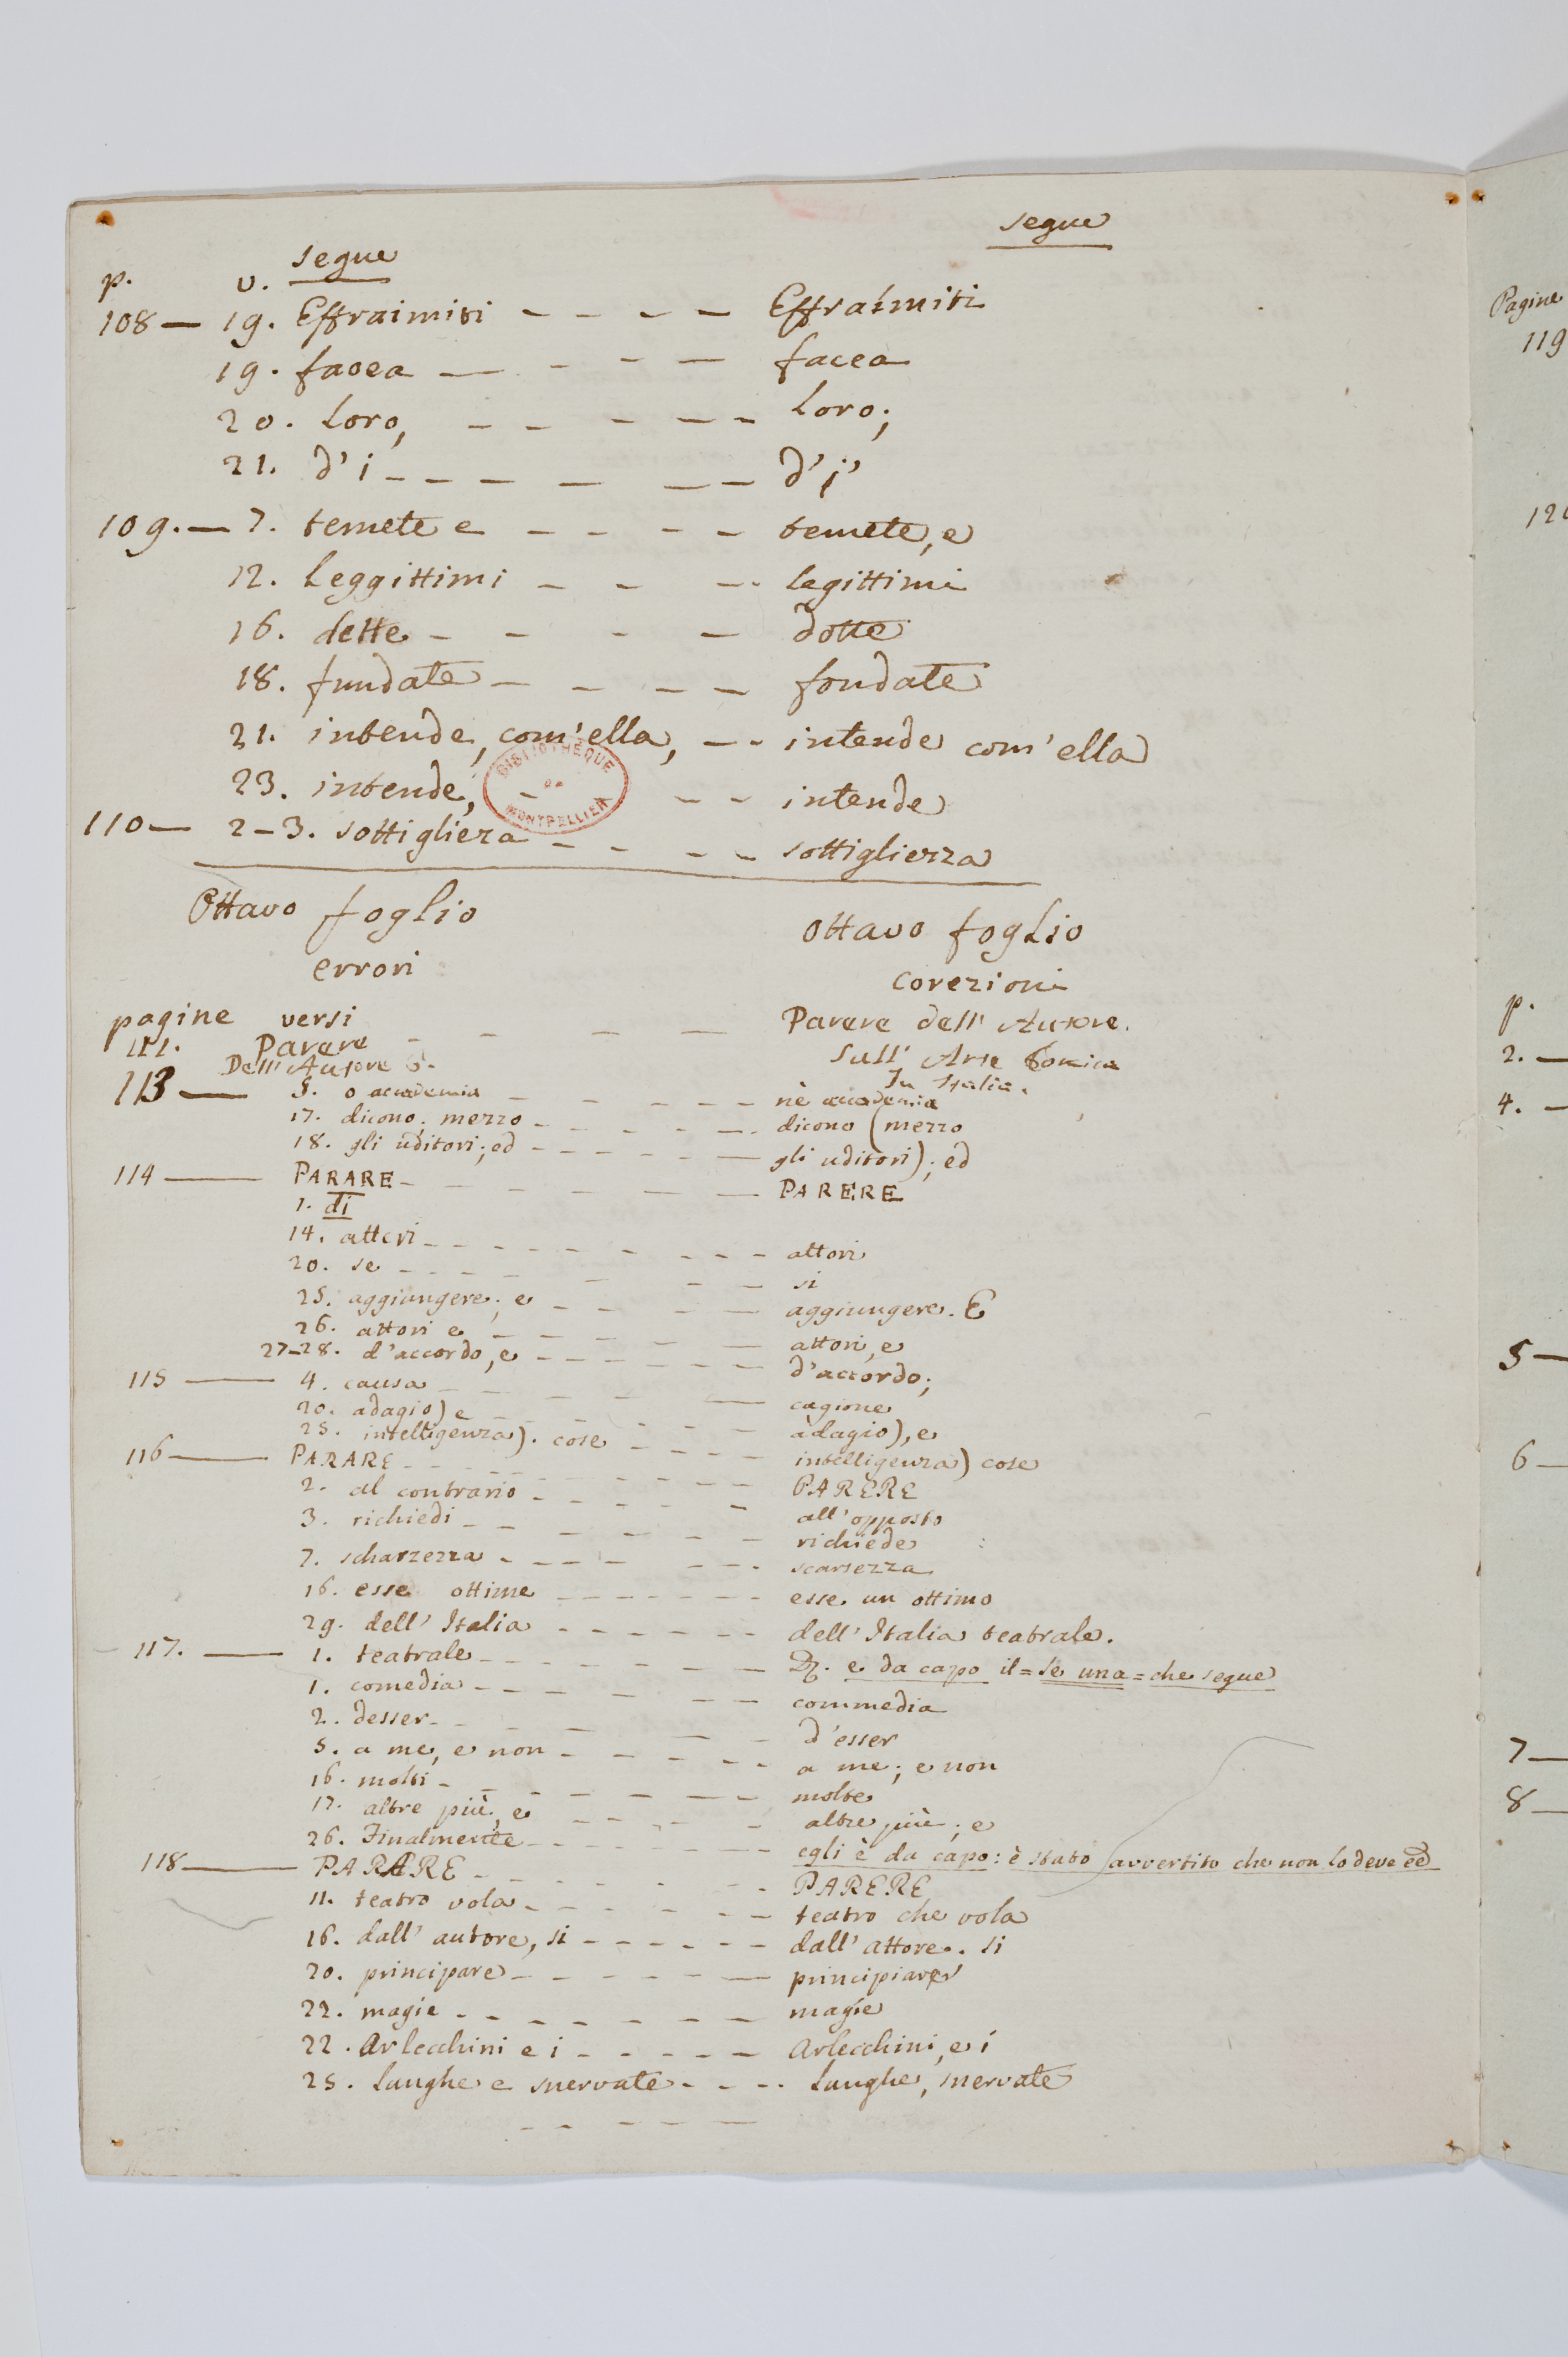 segue
segue
p. v.
108 — 19. Effraimiti - - - - Effraímiti
19. facea - - - - facea
20. loro, - - - - - loro;
21. d' i - - - - - - d' i'
109. — 7. temete e - - - - temete, e
12. leggittimi - - - legittimi
16. dette - - - - dotte
18. fundate - - - - fondate
21. intende, com' ella, - - intende com' ella
23. intende, - - - intende
110 — 2-3. sottiglieza - - - - sottigliezza
BIBLIOTHEQUE DE MONTPELLIER
Ottavo foglio ottavo foglio
errori corezioni
pagine versi
111. Parere - - - - Parere dell' Autore.
Dell' Autore &. Sull' Arte Comica
In Italia.
113 — 5. o accademia - - - - - nè accademia
17. dicono; mezzo - - - - - - dicono (mezzo
18. gli uditori; ed - - - - - - gli uditori); ed
114 — PARARE - - - - - - PARERE
1. di
14. atteri - - - - - - - - attori
20. se - - - - - - - si
25. aggiungere; e - - - - aggiungere. E
26. attori e - - - - - attori, e
27-28. d'accordo, e - - - - - - d'accordo;
115 — 4. causa - - - - - cagione
20. adagio) e - - - - - adagio), e
25. intelligenza). cose - - - - intelligenza) cose
116 — PARARE - - - - - - PARERE
2. al contrario - - - - - all' opposto
3. richiedi - - - - - - richiede
7. scharzezza - - - - - - scarsezza
16. esse ottime - - - - - - - esse un ottimo
29. dell' Italia - - - - - - dell' Italia teatrale.
117. — 1. teatrale - - - - - - - e da capo il = se una = che segue
1. comedia - - - - - - commedia
2. desser - - - - - - d'esser
5. a me, e non - - - - - - a me; e non
16. molti - - - - - - - molte
17. altre più, e - - - - - altre più; e
26. Finalmente - - - - - - egli è da capo: è stato avvertito che non lo deve
118 — PARARE - - - - - - PARERE
11. teatro vola - - - - - - teatro che vola
16. dall' autore, si - - - - - - dall' attore. si
20. principare - - - - - - principiar
22. magie - - - - - - - magíe
22. Arlecchini e i - - - - - Arlecchini, e i
25. lunghe e snervate - - - - lunghe, snervate
Pagine
119
p.
2. —
4. —
5 —
6 —
7 —
8 —